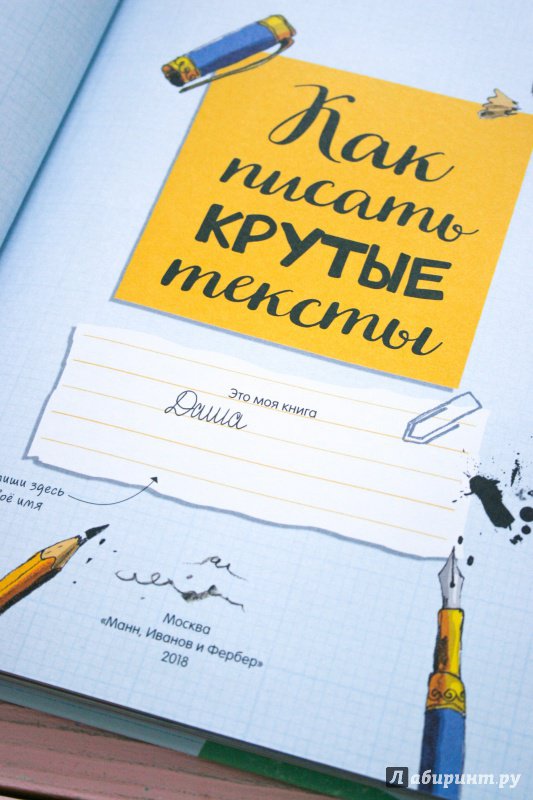 Как
писать
КРУТЫЕ
тексты
Это моя книга
Даша
здесь
имя
Москва
«Манн, Иванов и Фербер»
2018
Лабиринт.ру